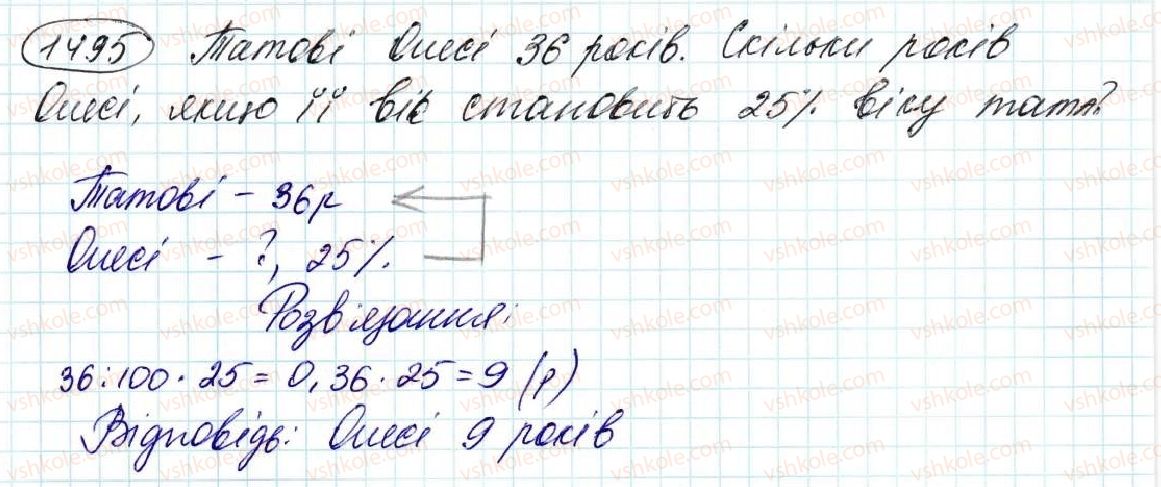 1495 Татові Олесі 36 років. Скільки років
Олесі, якщо її вік становить 25% віку тата?
Татові - 36р
Олесі - ?, 25%.
Розв'язання:
36:100·25=0,36·25=9 (р)
Відповідь: Олесі 9 років